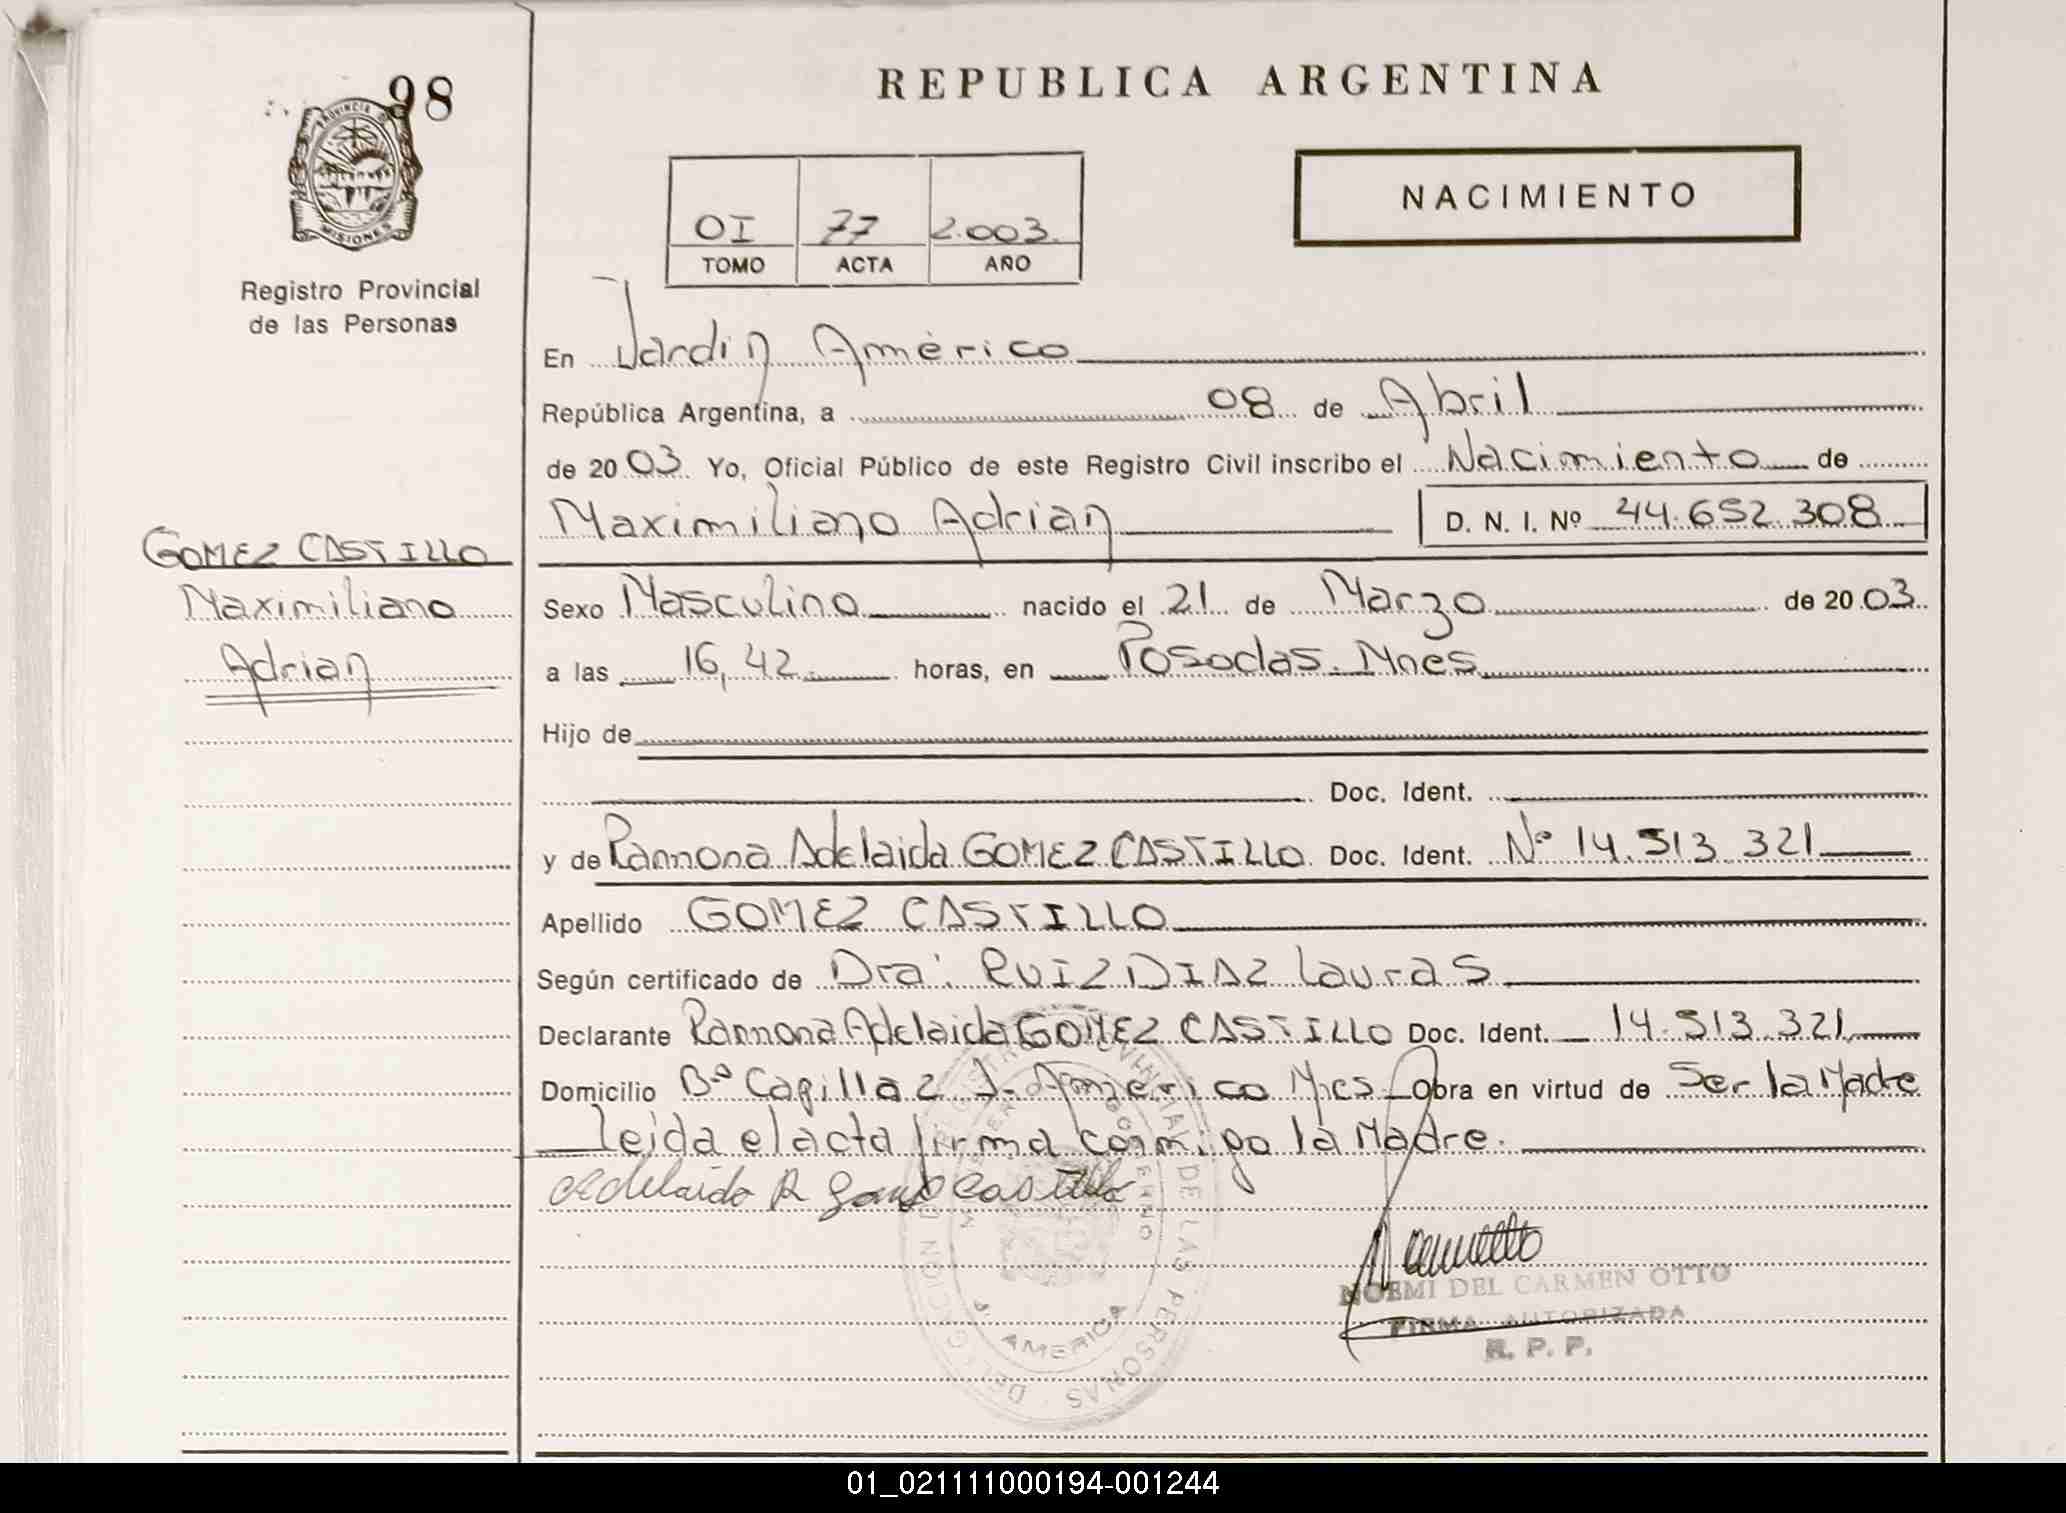 REPUBLICA ARGENTINA
98
PROVINCIA DE
MISIONES
Registro Provincial
de las Personas
NACIMIENTO
01 77 2.003
TOMO ACTA AÑO
En Jardin América
República Argentina, a 08 de Abril
de 2003 Yo, Oficial Público de este Registro Civil inscribo el Nacimiento de
Maximiliano Adrian D. N. I. Nº 44.652.308
GOMEZ CASTILLO
Maximiliano
Adrian
Sexo Masculino nacido el 21 de Marzo de 2003
a las 16,42 horas, en Posadas. Mnes
Hijo de
Doc. Ident.
y de Ramona Adelaida GOMEZ CASTILLO Doc. Ident. Nº 14.513.321
Apellido GOMEZ CASTILLO
Según certificado de Dra. RUIZ DIAZ Laura S
Declarante Ramona Adelaida GOMEZ CASTILLO Doc. Ident. 14.513.321
Domicilio Bº Capilla 2 J. América Mnes Obra en virtud de Ser la Madre
leida el acta firma conmigo la Madre.
Adelaida R Gomez Castillo
DE LAS PERSONAS
DELEGACION
J. AMERICA
NOEMI DEL CARMEN OTTO
FIRMA AUTORIZADA
R. P. P.
01_021111000194-001244